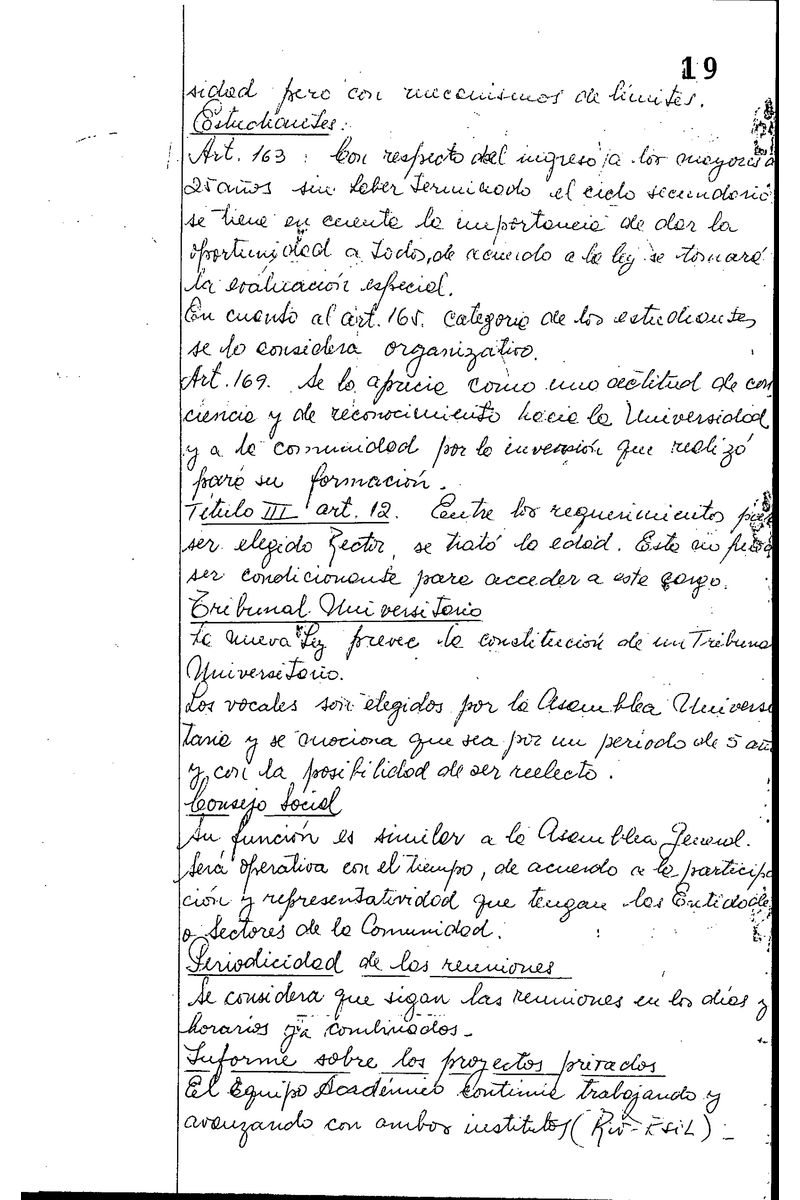 19
sidad pero con mecanismos de límites.
Estudiantes:
Art. 163: Con respecto del ingreso a los mayores a
25 años sin haber terminado el ciclo secundario
se tiene en cuenta la importancia de dar la
oportunidad a todos, de acuerdo a la ley se tomará
la evaluación especial.
En cuanto al art. 165. Categoría de los estudiantes
se lo considera organizativo.
Art. 169. Se lo aprecia como una actitud de con
ciencia y de reconocimiento hacia la Universidad
y a la comunidad por la inversión que realizó
para su formación.
Título III art. 12. Entre los requerimientos
ser elegido Rector, se trató la edad. Esta no
ser condicionante para acceder a este cargo.
Tribunal Universitario
La nueva Ley prevee la constitución de un Tribuna
Universitario.
Los vocales son elegidos por la Asamblea Universi
taria y se mociona que sea por un período de 5 añ
y con la posibilidad de ser reelecto.
Consejo Social
Su función es similar a la Asamblea General.
Será operativa con el tiempo, de acuerdo a la participa
ción y representatividad que tengan las Entidade
o Sectores de la Comunidad.
Periodicidad de las reuniones
Se considera que sigan las reuniones en los días y
horarios ya combinados.-
Informe sobre los proyectos privados
El Equipo Académico continúa trabajando y
avanzando con ambos institutos (